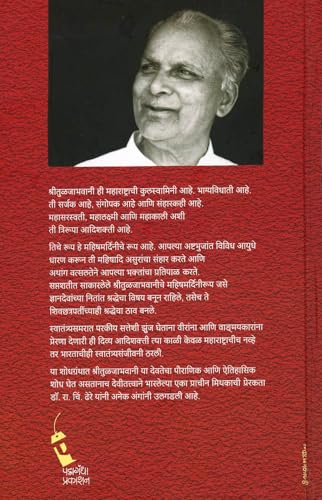 श्रीतुळजाभवानी ही महाराष्ट्राची कुलस्वामिनी आहे. भाग्यविधाती आहे.
ती सर्जक आहे, संगोपक आहे आणि संहारकही आहे.
महासरस्वती, महालक्ष्मी आणि महाकाली अशी
ती त्रिरूपा आदिशक्ती आहे.
तिचे रूप हे महिषमर्दिनीचे रूप आहे. आपल्या अष्टभुजांत विविध आयुधे
धारण करून ती महिषादि असुरांचा संहार करते आणि
अथांग वत्सलतेने आपल्या भक्तांचा प्रतिपाळ करते.
सप्तशतीत साकारलेले श्रीतुळजाभवानीचे महिषमर्दिनीरूप जसे
ज्ञानदेवांच्या नितांत श्रद्धेचा विषय बनून राहिले, तसेच ते
शिवछत्रपतींच्याही श्रद्धेचा ठाव बनले.
स्वातंत्र्यसमरात परकीय सत्तेशी झुंज घेताना वीरांना आणि वाङ्मयकारांना
प्रेरणा देणारी ही दिव्य आदिशक्ती त्या काळी केवळ महाराष्ट्राचीच नव्हे
तर भारताचीही स्वातंत्र्यसंजीवनी ठरली.
या शोधग्रंथात श्रीतुळजाभवानी या देवतेचा पौराणिक आणि ऐतिहासिक
शोध घेत असतानाच देवीतत्त्वाने भारलेल्या एका प्राचीन मिथकाची प्रेरकता
डॉ. रा. चिं. ढेरे यांनी अनेक अंगांनी उलगडली आहे.
पद्मगंधा
प्रकाशन